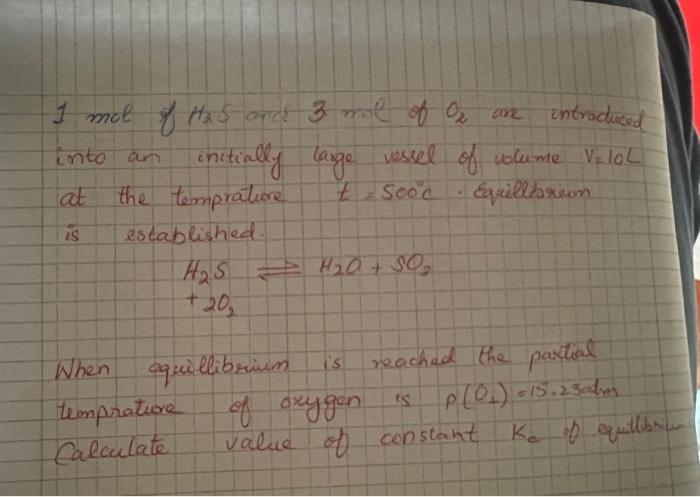 1 mol of H2S and 3 mol of O2 are introduced
into an initially large vessel of volume V=10L
at the temprature t = 500°c . Equillibrium
is established.
H2S ⇌ H2O + SO2
+ 2O2
When equillibrium is reached the partial
temprature of oxygen is p(O2) = 15.23atm
Calculate value of constant Kc of equillibrium